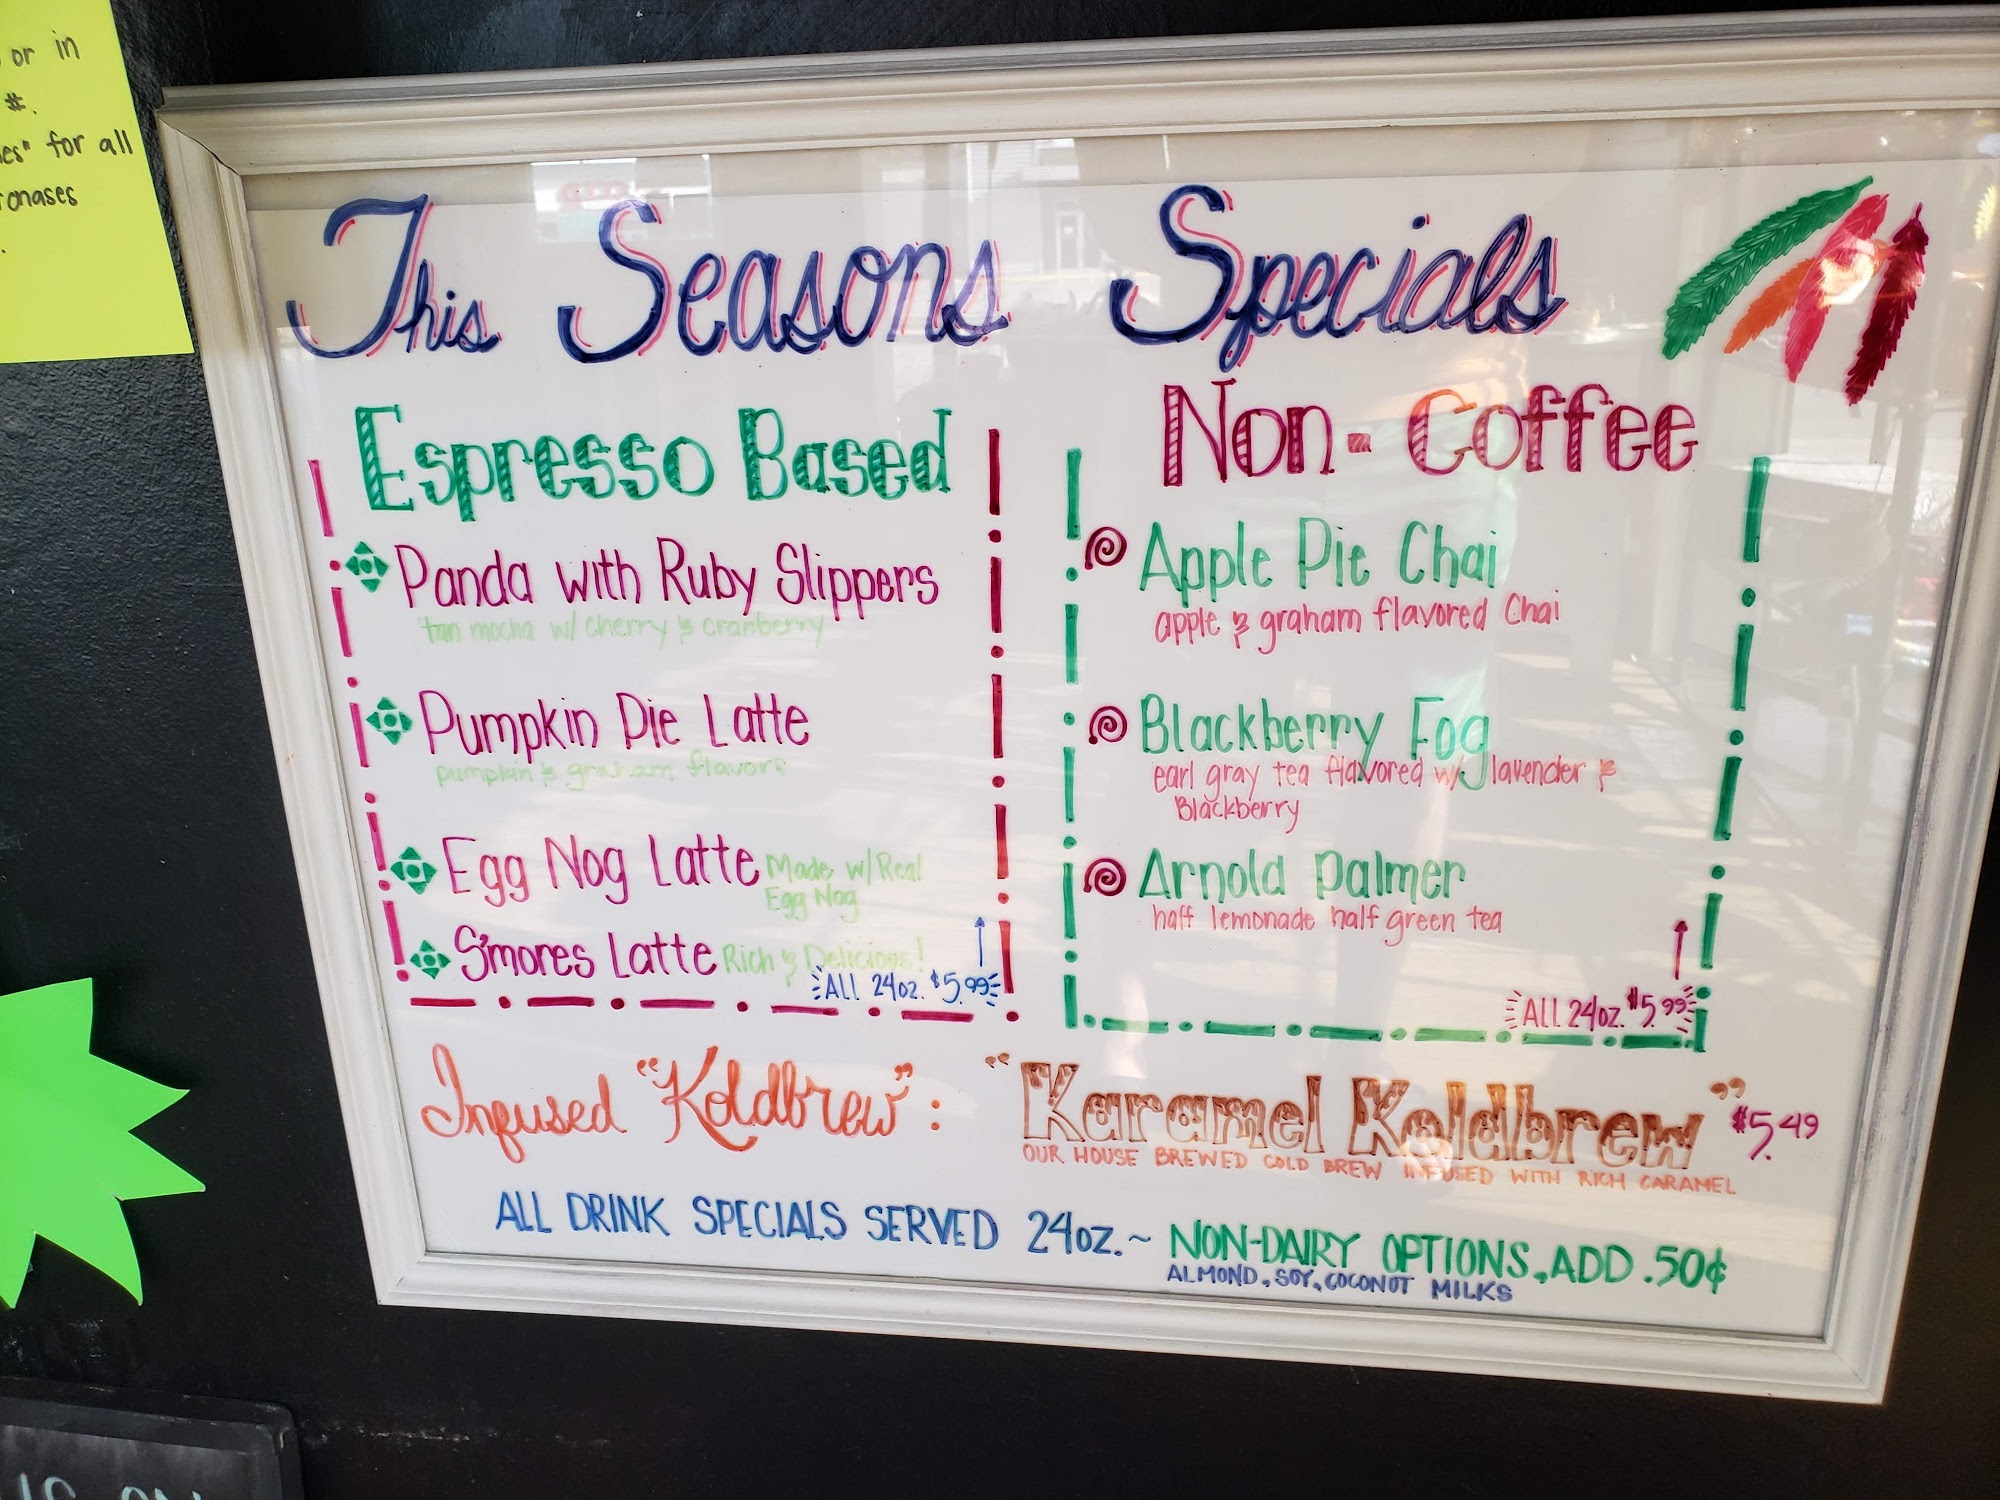 or in
#.
for all
.
This Seasons Specials
Espresso Based
Panda with Ruby Slippers
tan mocha w/ cherry & cranberry
Pumpkin Pie Latte
pumpkin & graham flavors
Egg Nog Latte Made w/ Real
Egg Nog
S'mores Latte Rich & Delicious!
ALL 24oz. $5.99
Non-Coffee
Apple Pie Chai
apple & graham flavored Chai
Blackberry Fog
earl gray tea flavored w/ lavender &
Blackberry
Arnold Palmer
half lemonade half green tea
ALL 24oz. $5.99
Infused "Koldbrew": "Karamel Koldbrew" $5.49
OUR HOUSE BREWED COLD BREW INFUSED WITH RICH CARAMEL
ALL DRINK SPECIALS SERVED 24oz.~ NON-DAIRY OPTIONS, ADD .50¢
ALMOND, SOY, COCONUT MILKS